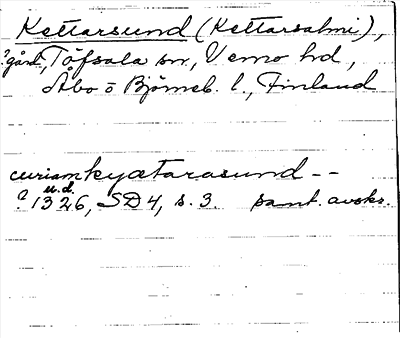 Kettarsund (Kettarsalmi),
? gård, Töfsala sn, Vemo hd,
Åbo o Björneb. l., Finland
curiam kyætarasund --
u.d.
? 1326, SD 4, s. 3. samt. avskr.